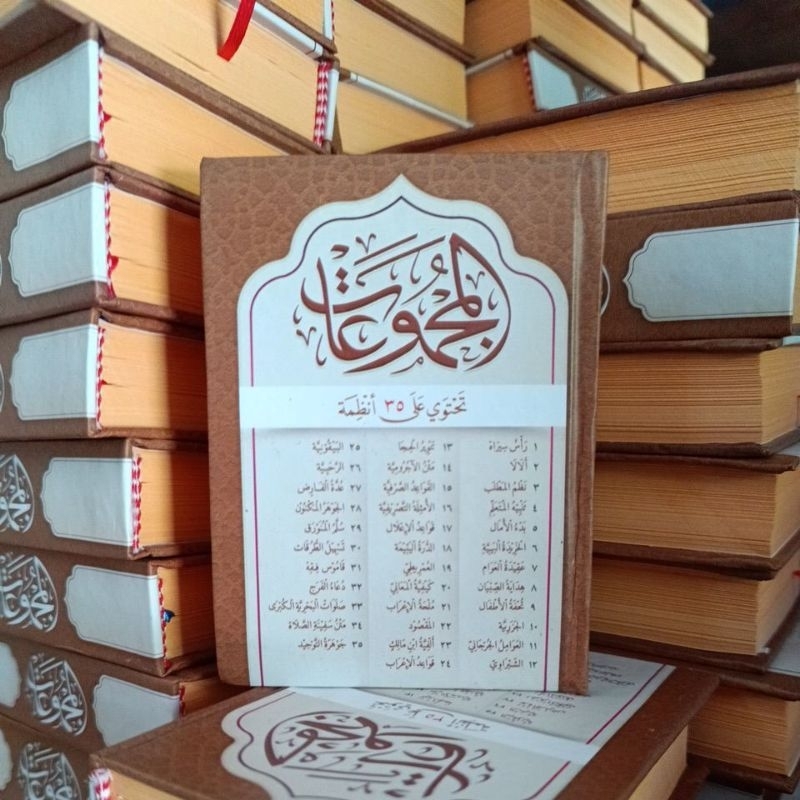 المجموعات
تحتوي على ٣٥ أنظمة
١ رأس سيراه
٢ ألالا
٣ نظم المطلب
٤ تنبيه المتعلم
٥ بدء الأمال
٦ الخريدة البهية
٧ عقيدة العوام
٨ هداية الصبيان
٩ تحفة الأطفال
١٠ الجزرية
١١ العوامل الجرجاني
١٢ الشبراوي
١٣ تنوير الحجا
١٤ متن الآجرومية
١٥ القواعد الصرفية
١٦ الأمثلة التصريفية
١٧ قواعد الإعلال
١٨ الدرة اليتيمة
١٩ العمريطي
٢٠ كيفية المعاني
٢١ ملحة الإعراب
٢٢ المقصود
٢٣ ألفية ابن مالك
٢٤ قواعد الإعراب
٢٥ البيقونية
٢٦ الرحبية
٢٧ عدة الفارض
٢٨ الجوهر المكنون
٢٩ سلم المنورق
٣٠ تسهيل الطرقات
٣١ قاموس فقه
٣٢ دعاء الفرج
٣٣ صلوات البحرية الكبرى
٣٤ متن سفينة الصلاة
٣٥ جوهرة التوحيد
المجموعات
المجموعات
المجموعات
المجموعات
تحتوي على ٣٥ أنظمة